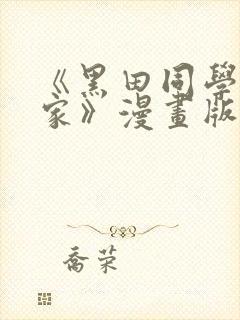 《黑田同學
家》漫畫版
喬荣